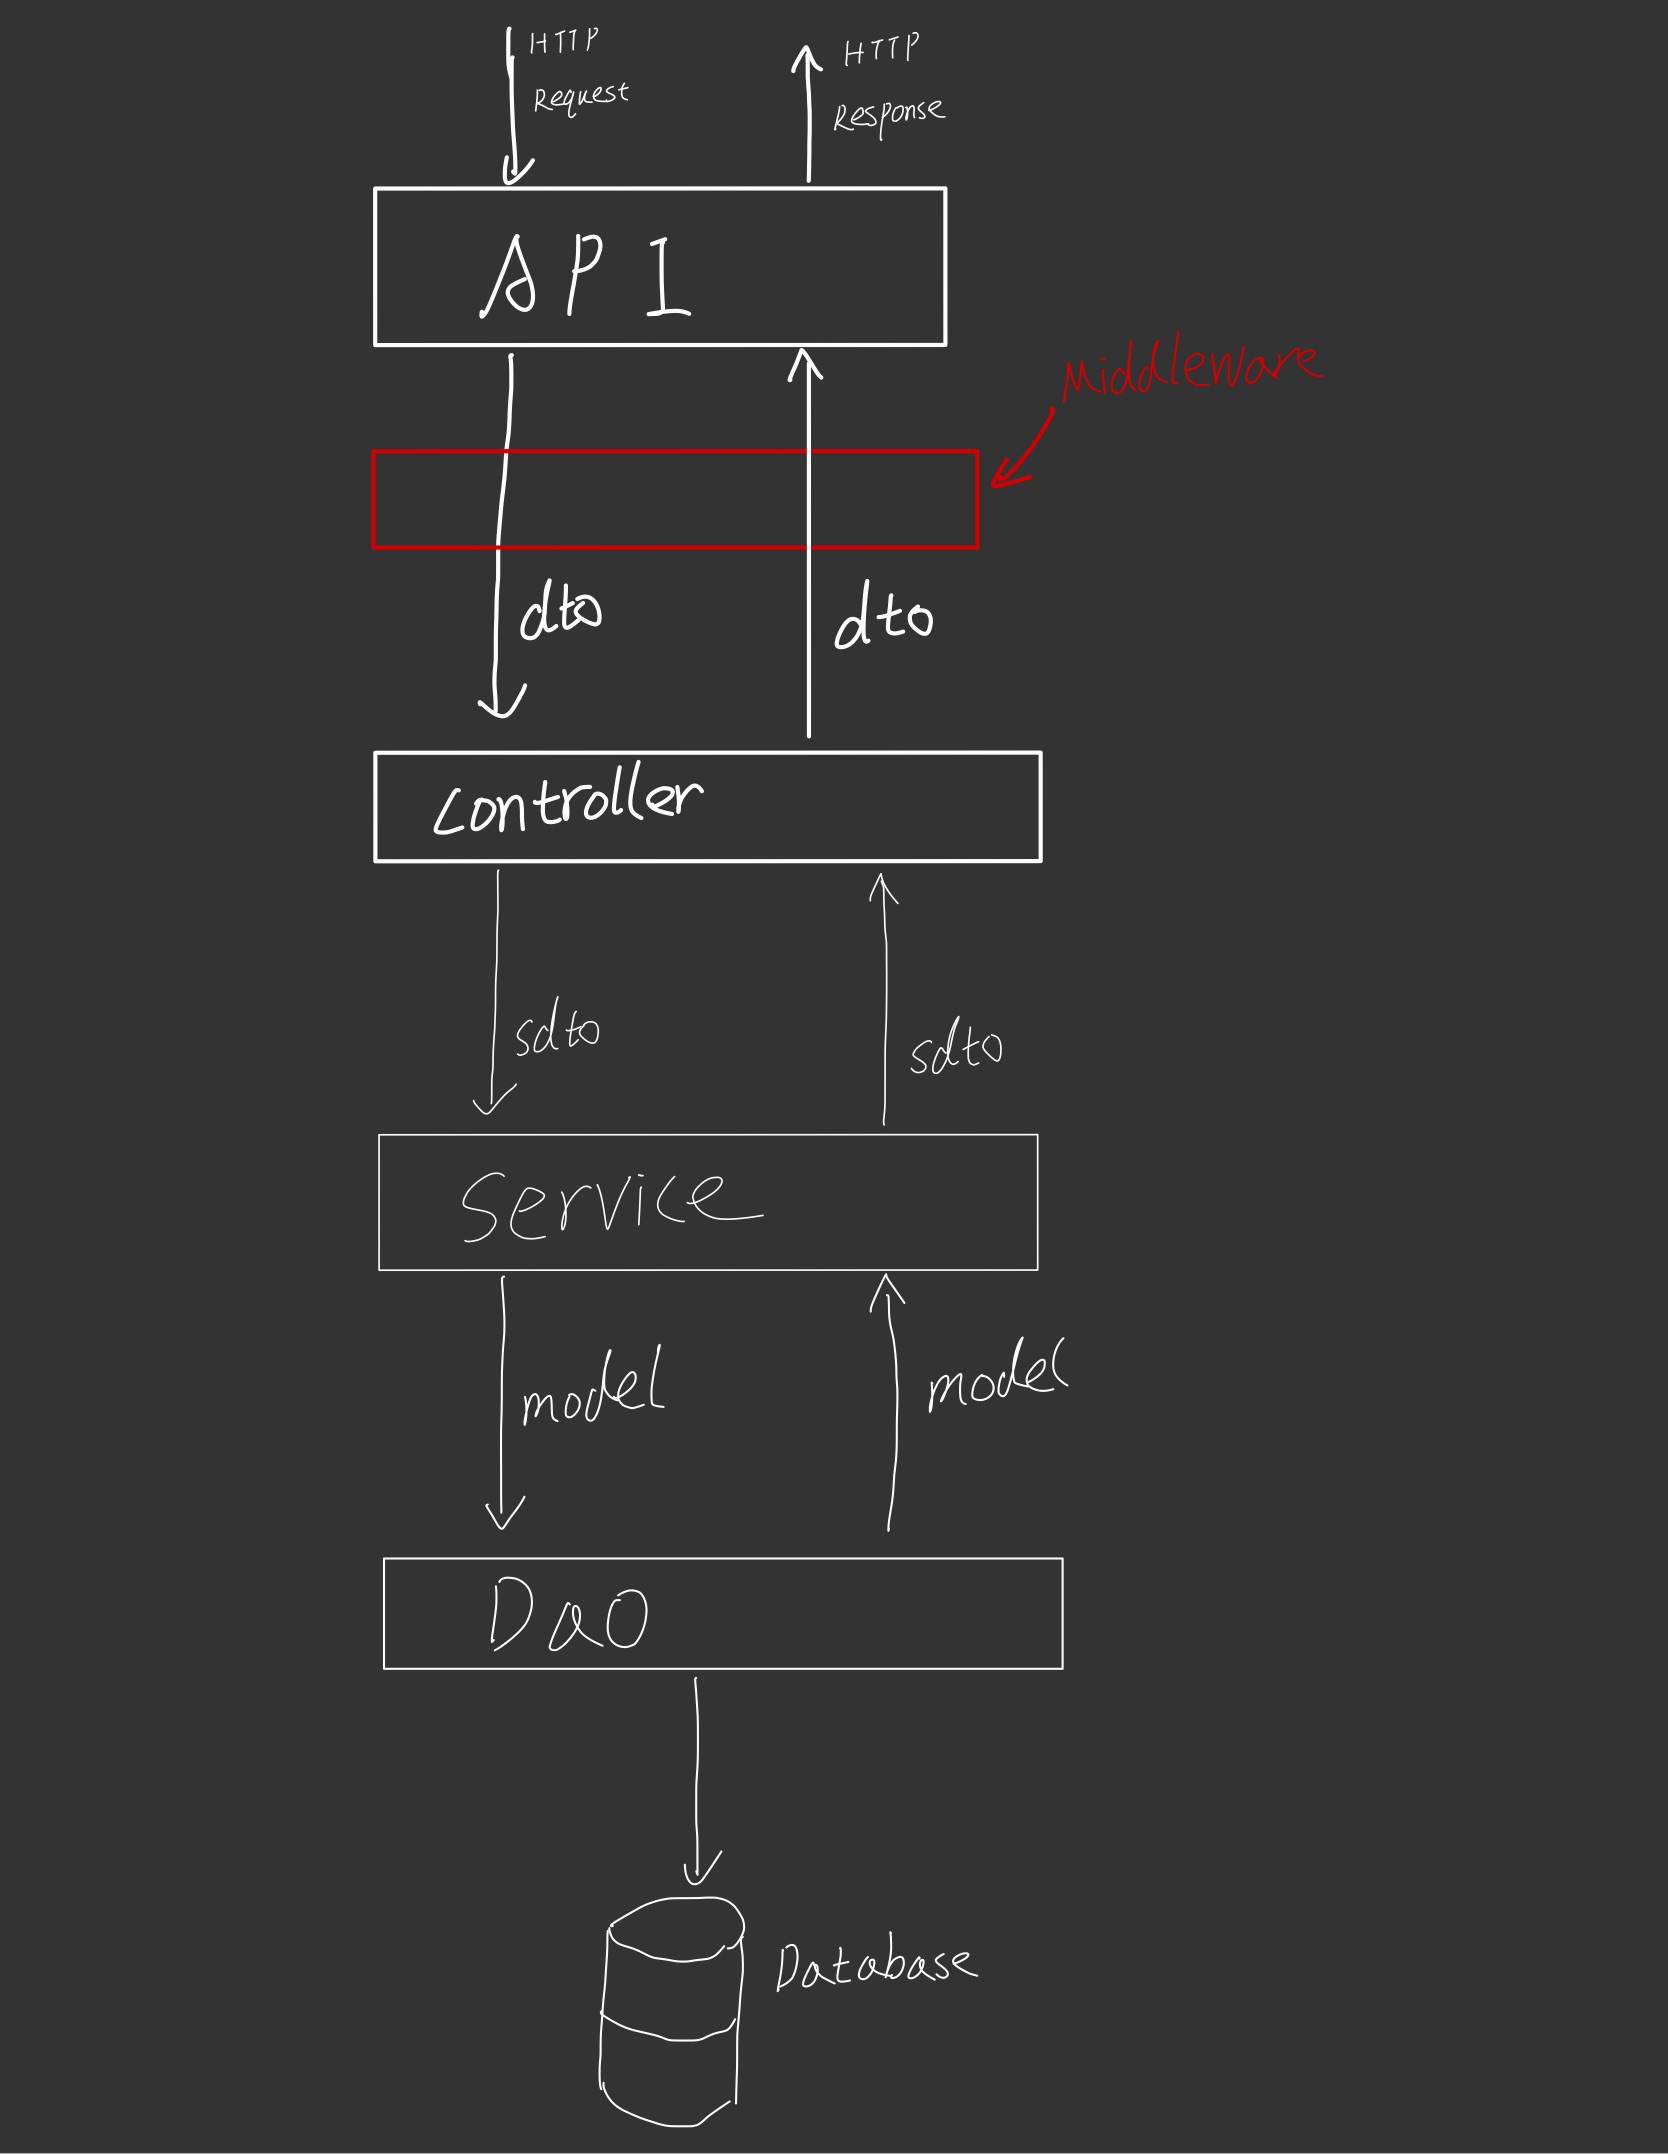 HTTP
Request
HTTP
Response
API
Middleware
dto
dto
Controller
sdto
sdto
Service
model
model
Dao
Database